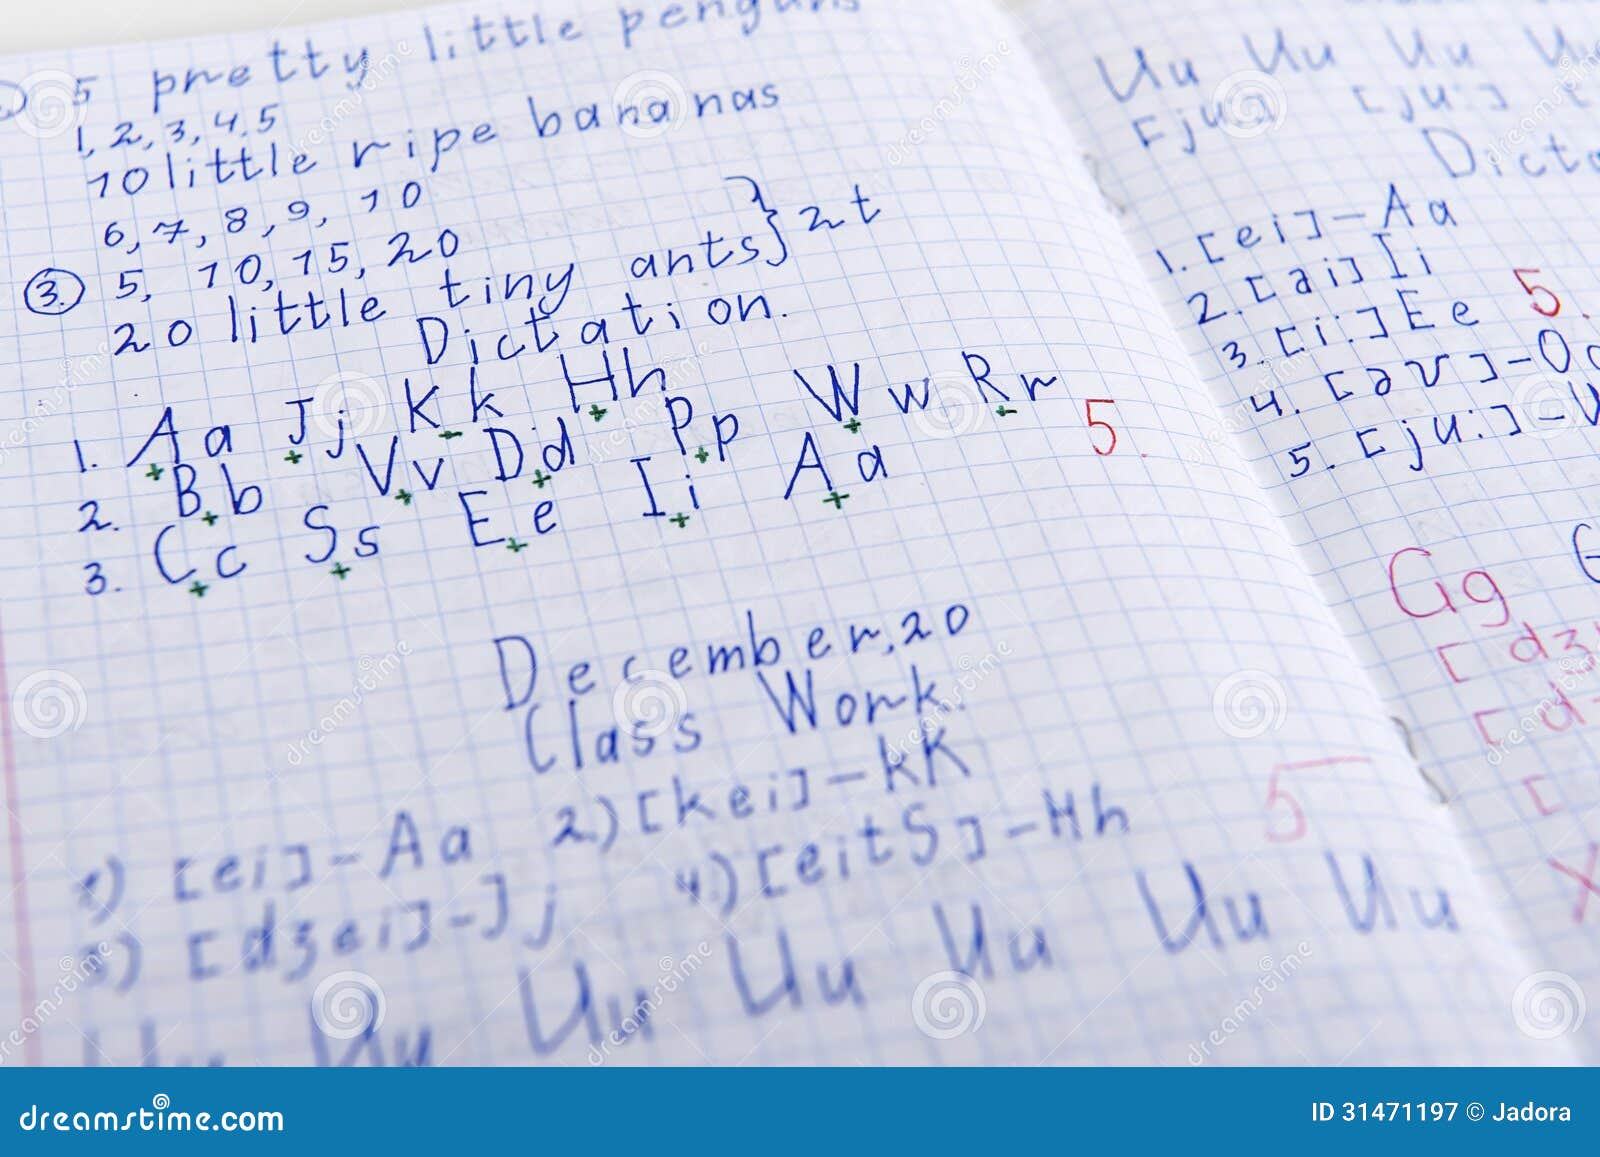 5 pretty little penguins
1, 2, 3, 4, 5
10 little ripe bananas
6, 7, 8, 9, 10
3. 5, 10, 15, 20 } 2t
20 little tiny ants
Dictation.
1. Aa Jj Kk Hh Pp Ww Rr
2. Bb Vv Dd Ii Aa 5.
3. Cc Ss Ee
December, 20
Class Work.
1) [ei]-Aa 2) [kei]-kK
3) [dʒei]-Jj 4.) [eitS]-Hh 5
Uu Uu Uu Uu Uu Uu Uu
Uu Uu Uu
[ju:] [ju:]
1. [ei]-Aa
2. [ai] Ii
3. [i:] Ee 5.
4. [əv]-O
5. [ju:]-U
Gg G
[dʒ
[d
[
dreamstime.com
ID 31471197 © Jadora